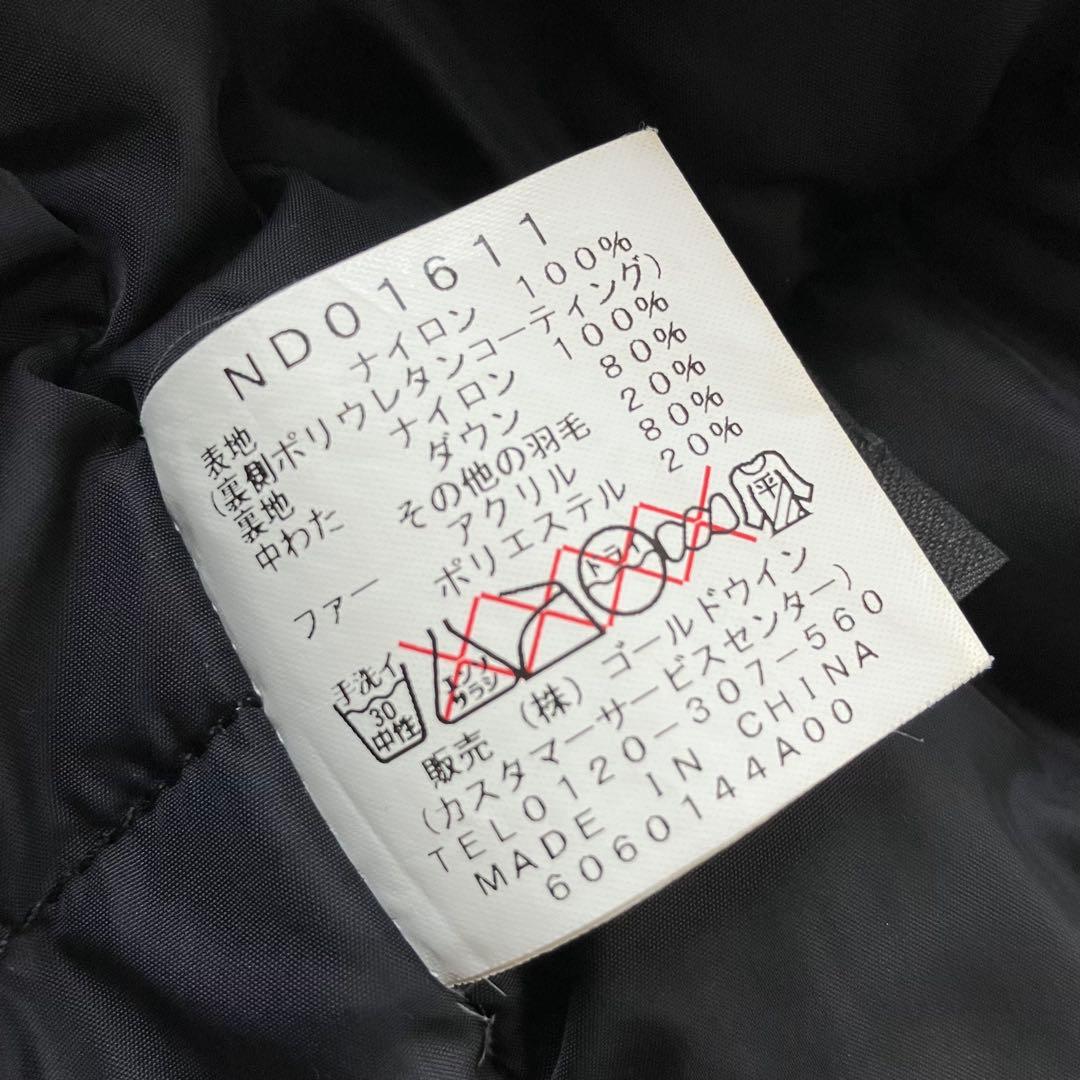 ND01611
表地 ナイロン 100%
(裏側ポリウレタンコーティング)
裏地 ナイロン 100%
中わた ダウン 80%
その他の羽毛 20%
ファー アクリル 80%
ポリエステル 20%
手洗イ 30 中性 エンソ サラシ ドライ 平
販売 (株) ゴールドウイン
(カスタマーサービスセンター)
TEL0120-307-560
MADE IN CHINA
6060144A00